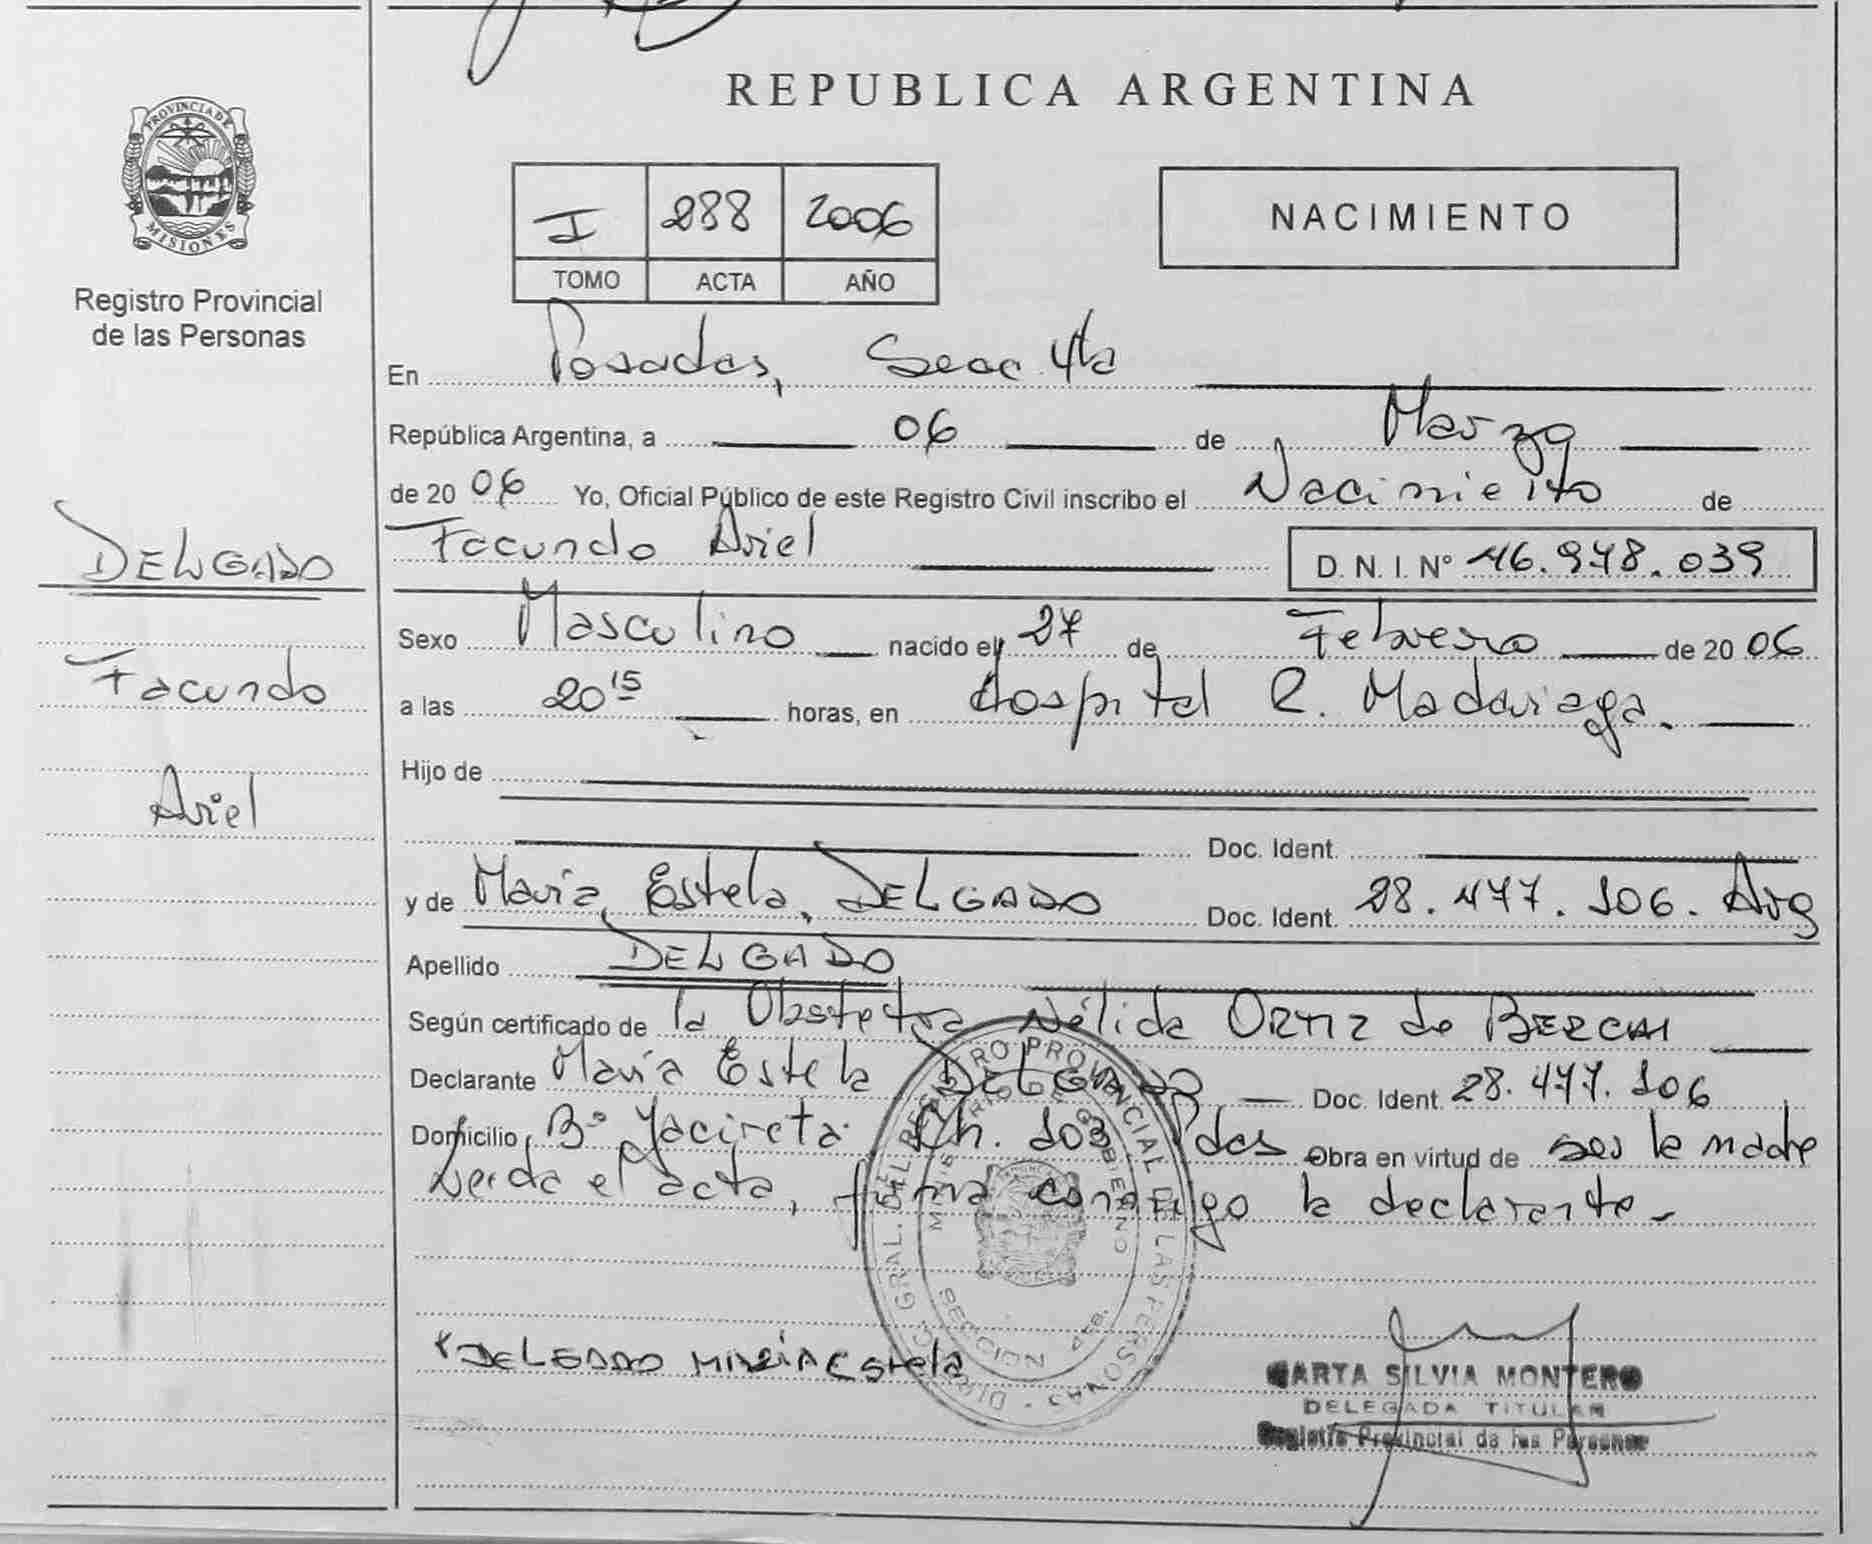 REPUBLICA ARGENTINA
PROVINCIA DE
MISIONES
Registro Provincial
de las Personas
I 288 2006
TOMO ACTA AÑO
NACIMIENTO
En Posadas, Secc 4ta
República Argentina, a 06 de Marzo
de 2006 Yo, Oficial Público de este Registro Civil inscribo el Nacimiento de
Facundo Ariel D. N. I. Nº 46.978.039
DELGADO
Facundo
Ariel
Sexo Masculino nacido el 27 de Febrero de 2006
a las 20 15 horas, en Hospital R. Madariaga.
Hijo de
Doc. Ident.
y de María Estela, DELGADO Doc. Ident. 28.477.106. Arg
Apellido DELGADO
Según certificado de la Obstetra Nélida ORTIZ de
Declarante María Estela DELGADO Doc. Ident. 28.477.106
Domicilio, Bº Yacireta Ch. 103 Pdas Obra en virtud de ser la madre
Leída el acta, firma conmigo la declarante-
DIRECC. GRAL. DEL REGISTRO PROVINCIAL DE LAS PERSONAS
MINISTERIO DE GOBIERNO
SECCION
DELGADO MARIA Estela
SILVIA MONTERO
DELEGADA TITULAR
Registro Provincial de las Personas